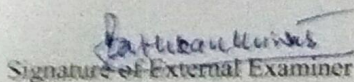 Signature of External Examiner